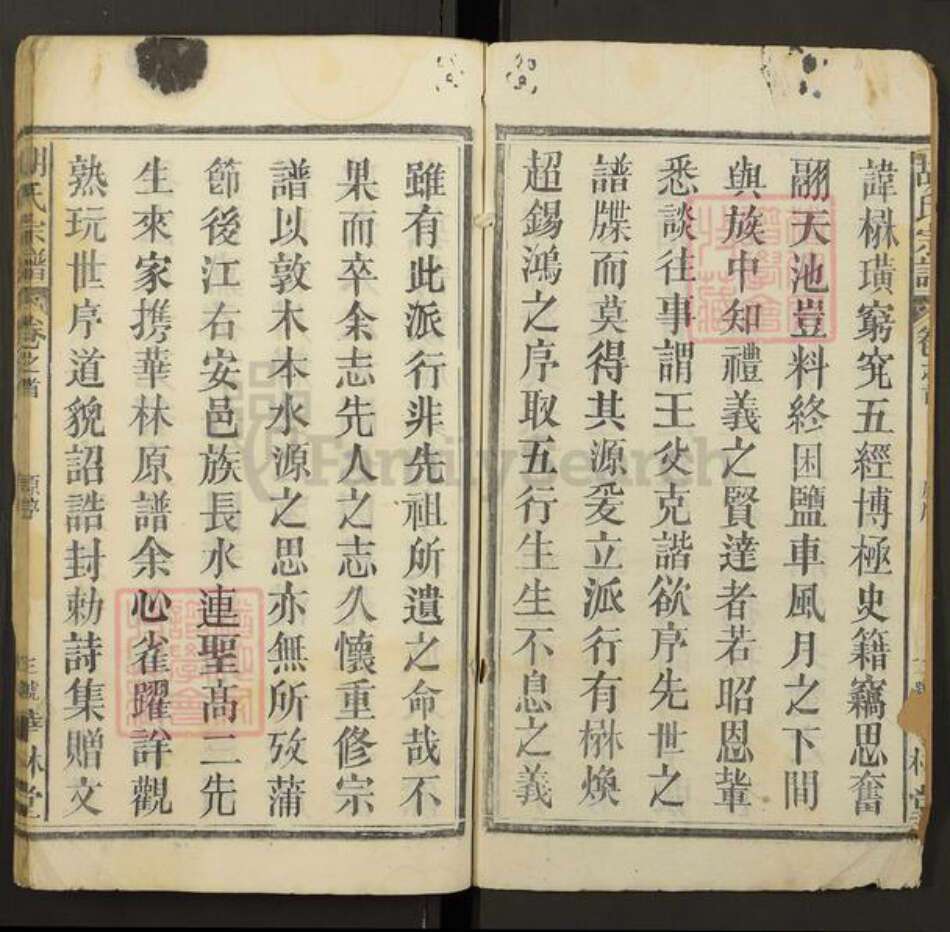 諱楙璜窮究五經博極史籍竊思奮
翮天池豈料終困鹽車風月之下間
與族中知禮義之賢達者若昭恩輩
悉談往事謂王父克諧欲序先世之
譜牒而莫得其源爰立派行有楙煥
超錫鴻之序取五行生生不息之義
雖有此派行非先祖所遺之命哉不
果而卒余志先人之志久懷重修宗
譜以敦木本水源之思亦無所攷蒲
節後江右安邑族長水連聖高三先
生來家携華林原譜余心雀躍詳觀
熟玩世序道貌詔誥封勅詩集贈文
胡氏宗譜 卷之首 華林堂
FamilySearch